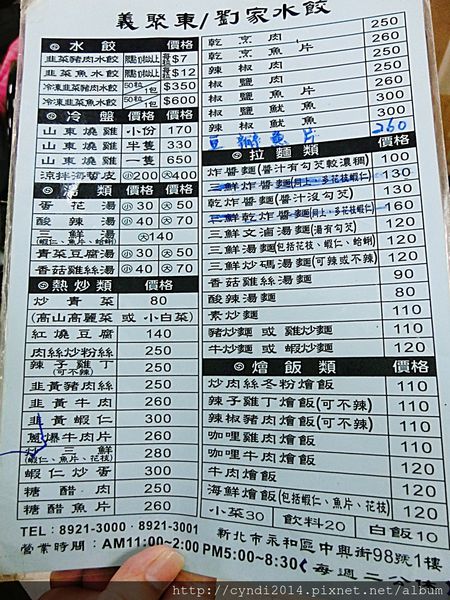 義聚東/劉家水餃
水餃 價格
韭菜豬肉水餃 $7
韭菜魚水餃 $12
冷凍韭菜豬肉水餃 50粒1包 $350
冷凍韭菜魚水餃 50粒1包 $600
冷盤 價格
山東燒雞 小份 170
山東燒雞 半隻 330
山東燒雞 一隻 650
涼拌海蜇皮 小200大400
湯類 價格
香花湯 小30 大50
酸辣湯 小40 大70
三鮮湯 大140
(蝦仁、魚片、蛤蜊)
青菜豆腐湯 小30 大50
香菇雞絲湯 小40 大70
熱炒類 價格
炒青菜 80
(高山高麗菜 或 小白菜)
紅燒豆腐 140
肉絲炒粉絲 250
辣子雞丁 250
(可不辣)
韭黃豬肉絲 250
韭黃牛肉 260
韭黃蝦仁 300
蔥爆牛肉片 260
三鮮 280
(蝦仁、魚片、花枝)
蝦仁炒蛋 300
糖醋肉 250
糖醋魚片 260
乾烹肉 250
乾烹魚片 260
辣椒肉 250
辣椒魚片 260
乾烹魷魚 300
辣椒魷魚 300
魚片 260
拉麵類 價格
炸醬麵(醬汁有勾芡較濃稠) 100
三鮮炸醬麵(同上、多花枝蝦仁) 130
乾炸醬麵(醬汁沒勾芡) 130
三鮮乾炸醬麵(同上、多花枝蝦仁) 160
三鮮文滷湯麵(湯有勾芡) 120
三鮮湯麵(包括花枝、蝦仁、蛤蜊) 120
三鮮炒碼湯麵(可辣或不辣) 120
香菇雞絲湯麵 90
酸辣湯麵 80
素炒麵
豬炒麵 或 雞炒麵 120
牛炒麵 或 蝦炒麵 120
燴飯類 價格
炒肉絲冬粉燴飯 110
辣子雞丁燴飯(可不辣) 110
辣椒豬肉燴飯(可不辣) 110
咖哩雞肉燴飯 110
咖哩牛肉燴飯 120
牛肉燴飯 120
海鮮燴飯(包括蝦仁、魚片、花枝) 120
小菜30 飲料20 白飯10
TEL：8921-3000・8921-3001
新北市永和區中興街98號1樓
營業時間：AM11:00~2:00 PM5:00~8:30
(每週二公休
http://cyndi2014.pixnet.net/album